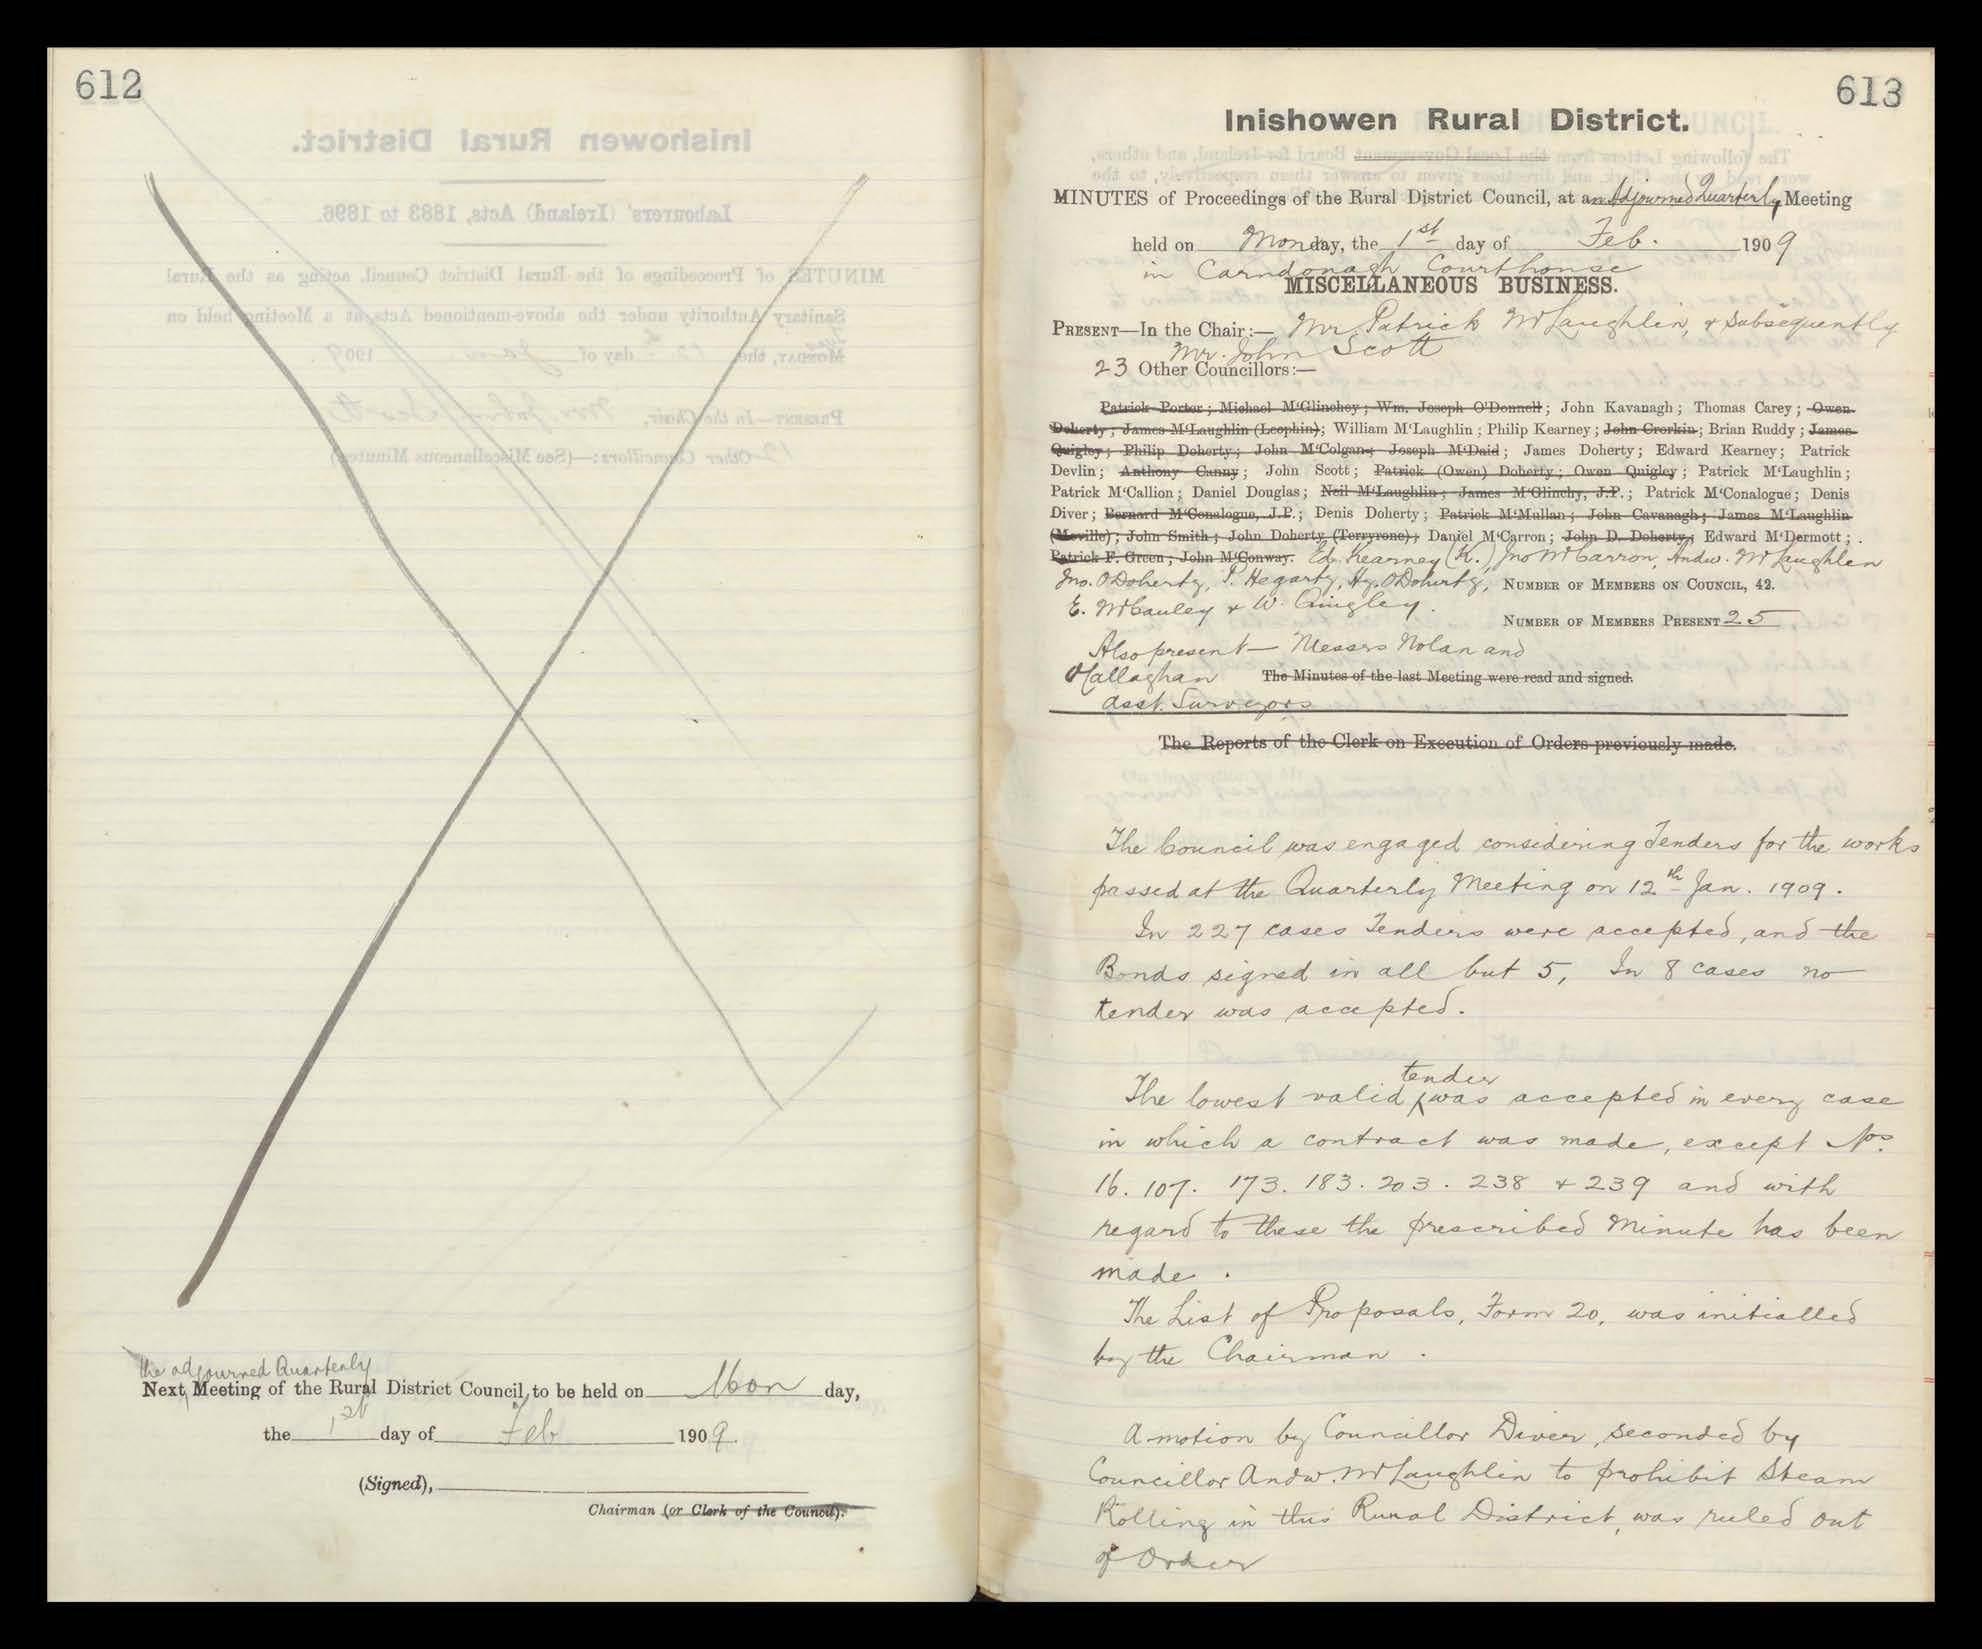 612
the adjourned Quarterly
Next Meeting of the Rural District Council, to be held on Mon day,
the 1st day of Feb 1909.
(Signed),
Chairman (or Clerk of the Council).
613
Inishowen Rural District.
MINUTES of Proceedings of the Rural District Council, at an Adjourned Quarterly Meeting
held on Monday, the 1st day of Feb. 1909
in Carndonagh Courthouse
MISCELLANEOUS BUSINESS.
PRESENT—In the Chair:— Mr. Patrick McLaughlin, & subsequently
Mr. John Scott
23 Other Councillors:—
Patrick Porter; Michael M'Glinchey; Wm. Joseph O'Donnell; John Kavanagh; Thomas Carey; Owen
Doherty; James M'Laughlin (Leophin); William M'Laughlin; Philip Kearney; John Crorkin; Brian Ruddy; James
Quigley; Philip Doherty; John M'Colgan; Joseph M'Daid; James Doherty; Edward Kearney; Patrick
Devlin; Anthony Canny; John Scott; Patrick (Owen) Doherty; Owen Quigley; Patrick M'Laughlin;
Patrick M'Callion; Daniel Douglas; Neil M'Laughlin; James M'Glinchy, J.P.; Patrick M'Conalogue; Denis
Diver; Bernard M'Conalogue, J.P.; Denis Doherty; Patrick M'Mullan; John Cavanagh; James M'Laughlin
(Moville); John Smith; John Doherty (Terryrone); Daniel M'Carron; John D. Doherty; Edward M'Dermott;
Patrick F. Green; John M'Conway. Ed. Kearney (K.), Jno McCarron, Andw. McLaughlin
Jno. O'Doherty, P. Hegarty, Hy. O'Doherty, NUMBER OF MEMBERS ON COUNCIL, 42.
E. McCauley & W. Quigley.
NUMBER OF MEMBERS PRESENT 25
Also present— Messrs Nolan and
O'Callaghan The Minutes of the last Meeting were read and signed.
Asst. Surveyors
The Reports of the Clerk on Execution of Orders previously made.
The Council was engaged considering Tenders for the works
passed at the Quarterly Meeting on 12th Jan. 1909.
In 227 cases Tenders were accepted, and the
Bonds signed in all but 5, In 8 cases no
tender was accepted.
tender
The lowest valid was accepted in every case
in which a contract was made, except Nos.
16. 107. 173. 183. 203. 238 & 239 and with
regard to these the prescribed Minute has been
made.
The List of Proposals, Form 20, was initialled
by the Chairman.
A motion by Councillor Diver, seconded by
Councillor Andw. McLaughlin to prohibit Steam
Rolling in this Rural District, was ruled out
of Order